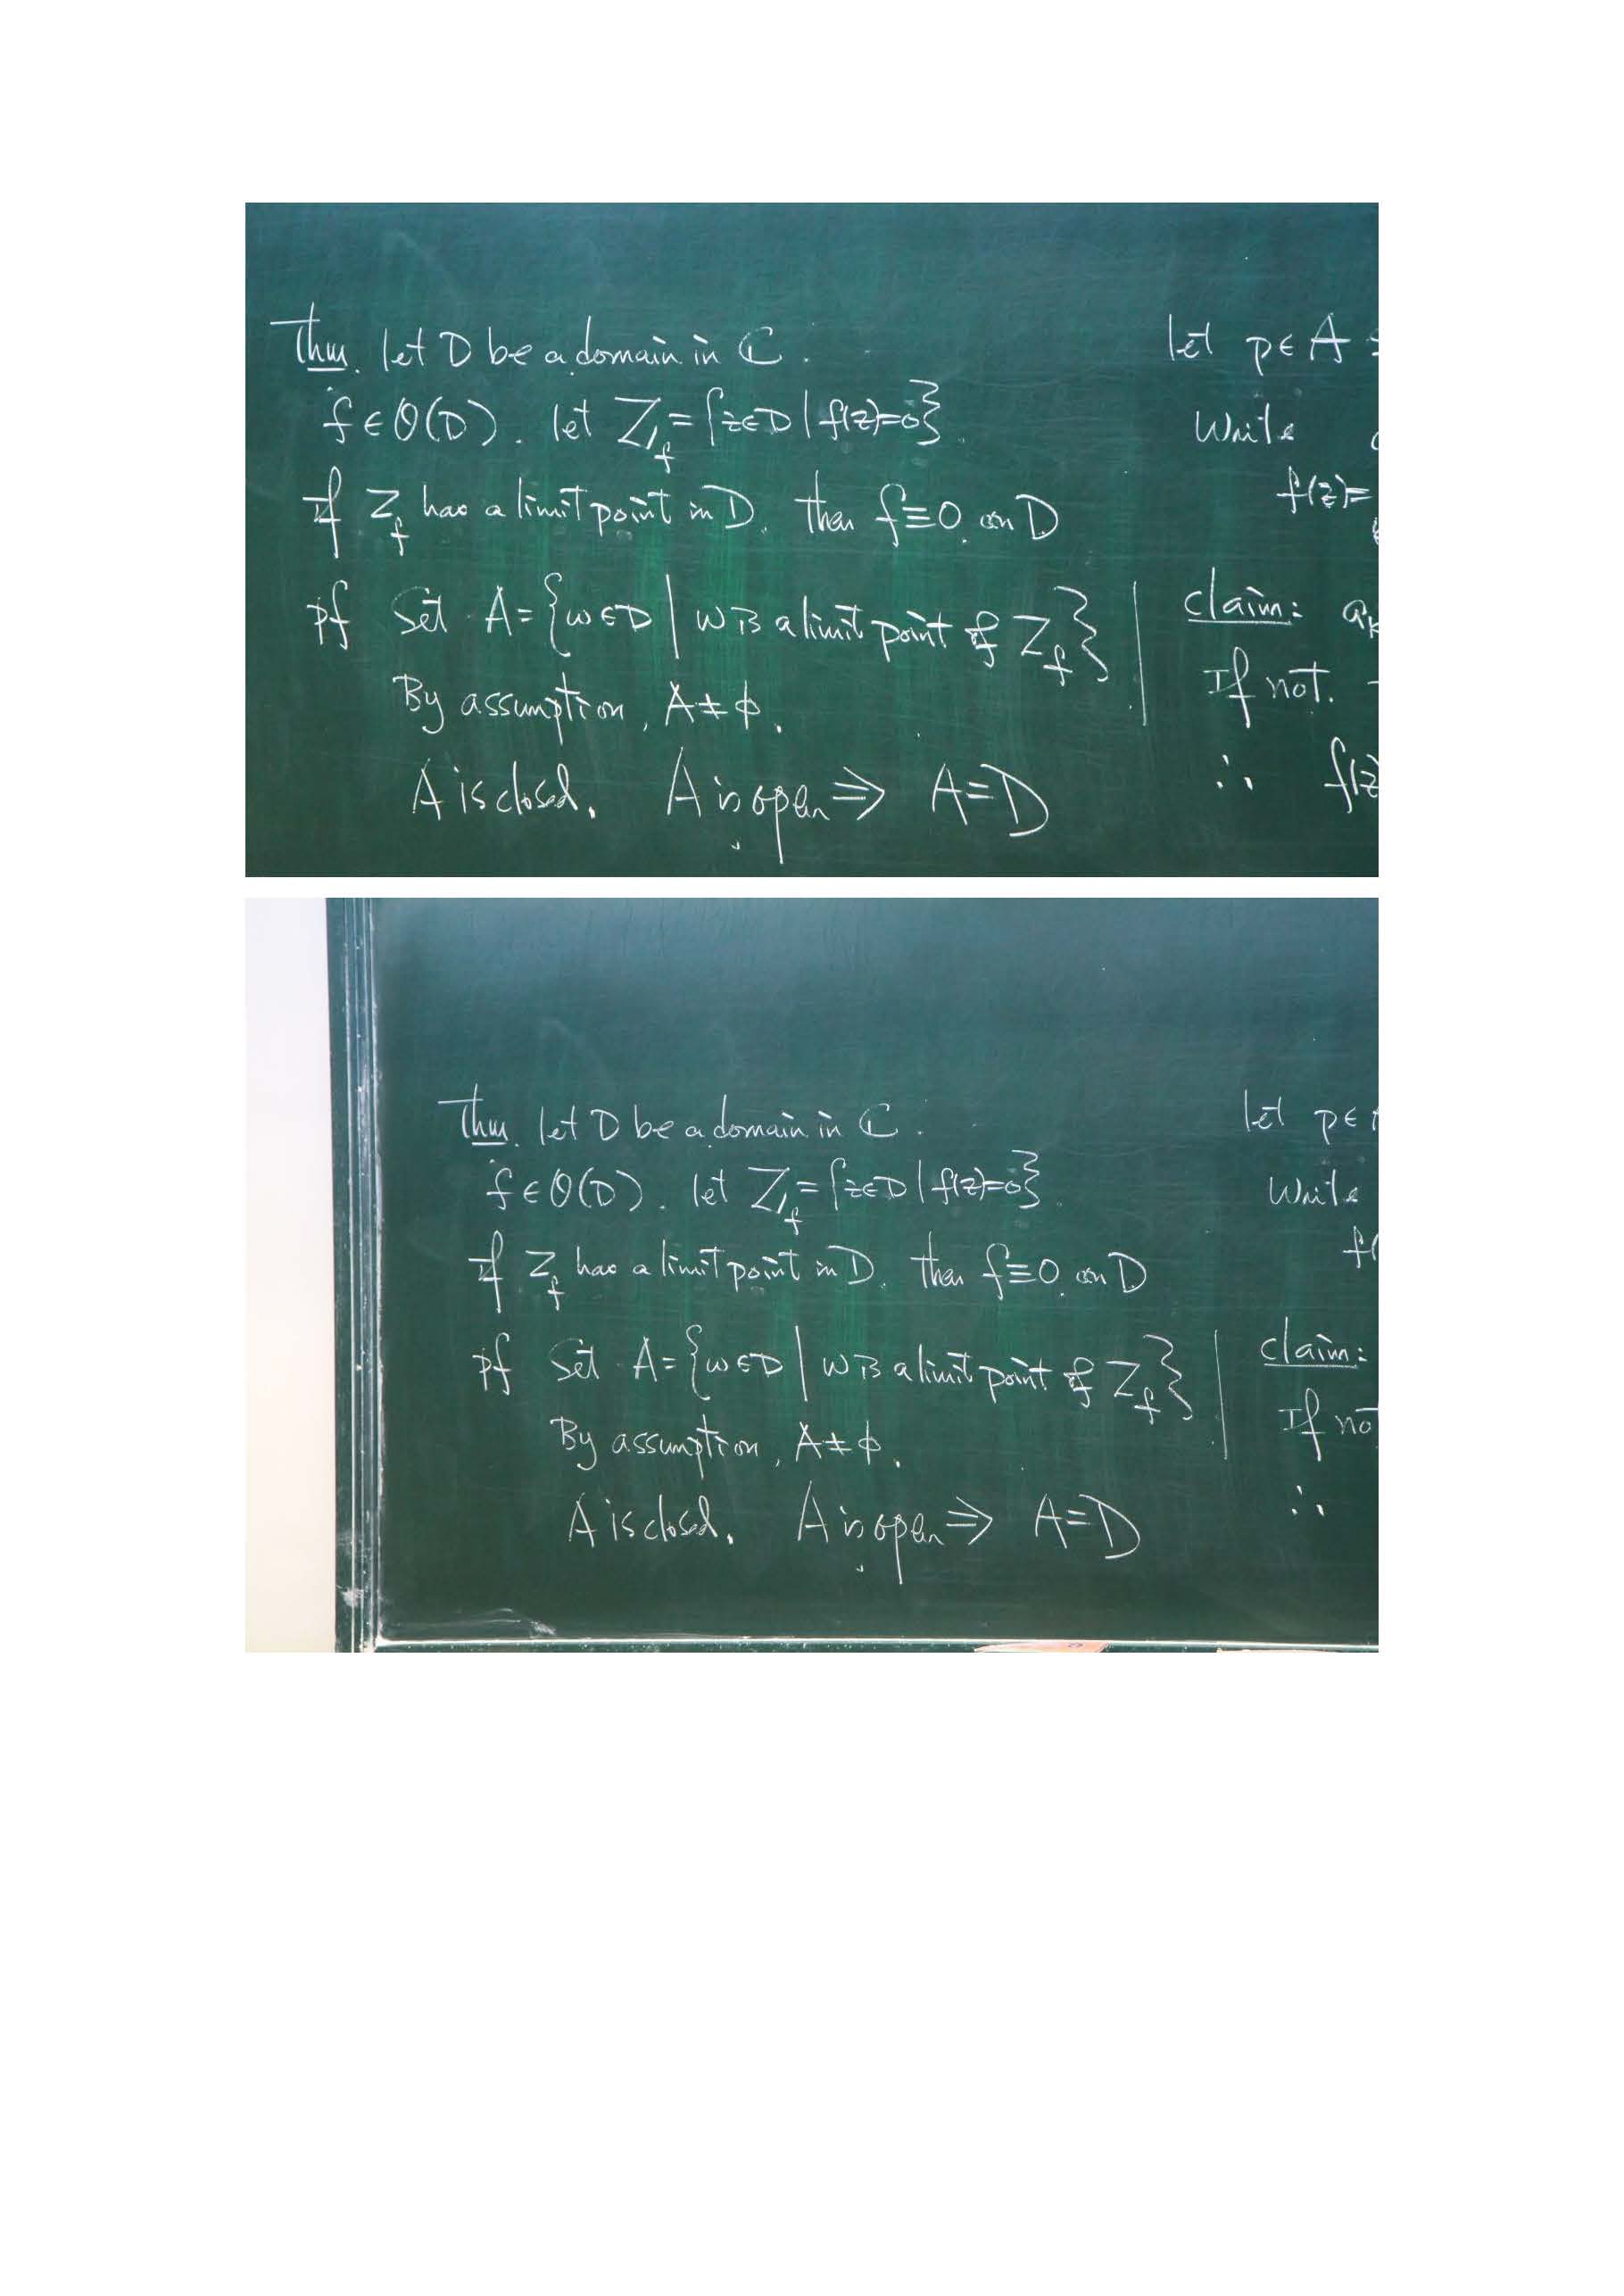 Thm. let D be a domain in ℂ.
f ∈ O(D). let Z_f = {z∈D | f(z)=0}.
If Z_f has a limit point in D, then f≡0 on D
pf Set A = {w∈D | w is a limit point of Z_f}
By assumption, A≠φ.
A is closed. A is open ⇒ A=D
let p∈A
Write
f(z)=
claim: a_k
If not.
∴ f(z)
Thm. let D be a domain in ℂ.
f ∈ O(D). let Z_f = {z∈D | f(z)=0}.
If Z_f has a limit point in D, then f≡0 on D
pf Set A = {w∈D | w is a limit point of Z_f}
By assumption, A≠φ.
A is closed. A is open ⇒ A=D
let p∈
Write
f(
claim:
If no
∴